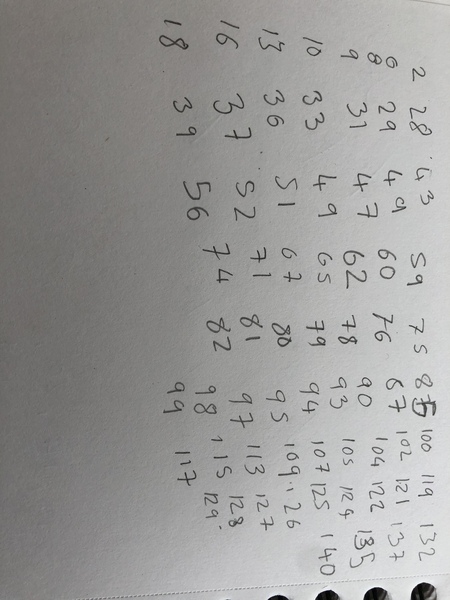 2 28 43 59 75 85 100 119 132
6 8 29 49 60 76 87 102 121 137
9 31 47 62 78 90 104 122 135
10 33 49 65 79 93 105 124 140
13 36 51 67 80 94 107 125
16 37 52 71 81 95 109 126
18 39 56 74 82 97 113 127
98 115 128
99 117 129